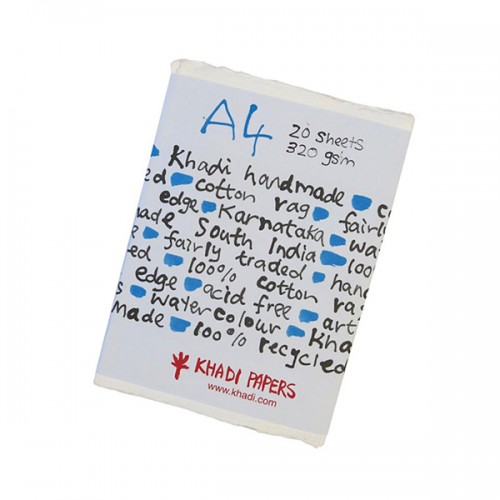 A4 20 sheets
320 gsm
Khadi handmade
ed cotton rag fairly
edge Karnataka wa
ade South India 100
fairly traded han
ed 100% cotton rag
edge acid free art
s watercolour Kha
made 100% recycled
KHADI PAPERS
www.khadi.com